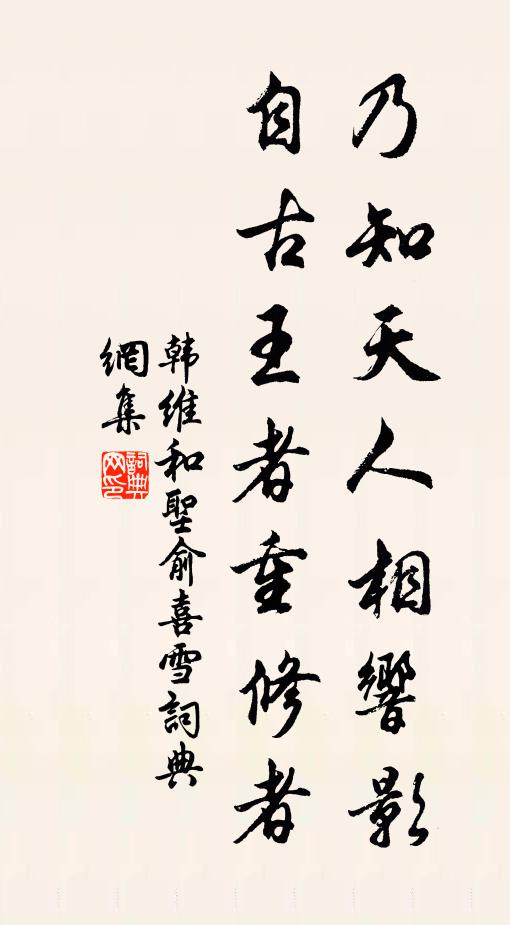 乃知天人相響影
自古王者重修者
韩維和聖俞喜雪詞典
網集
詞典網印